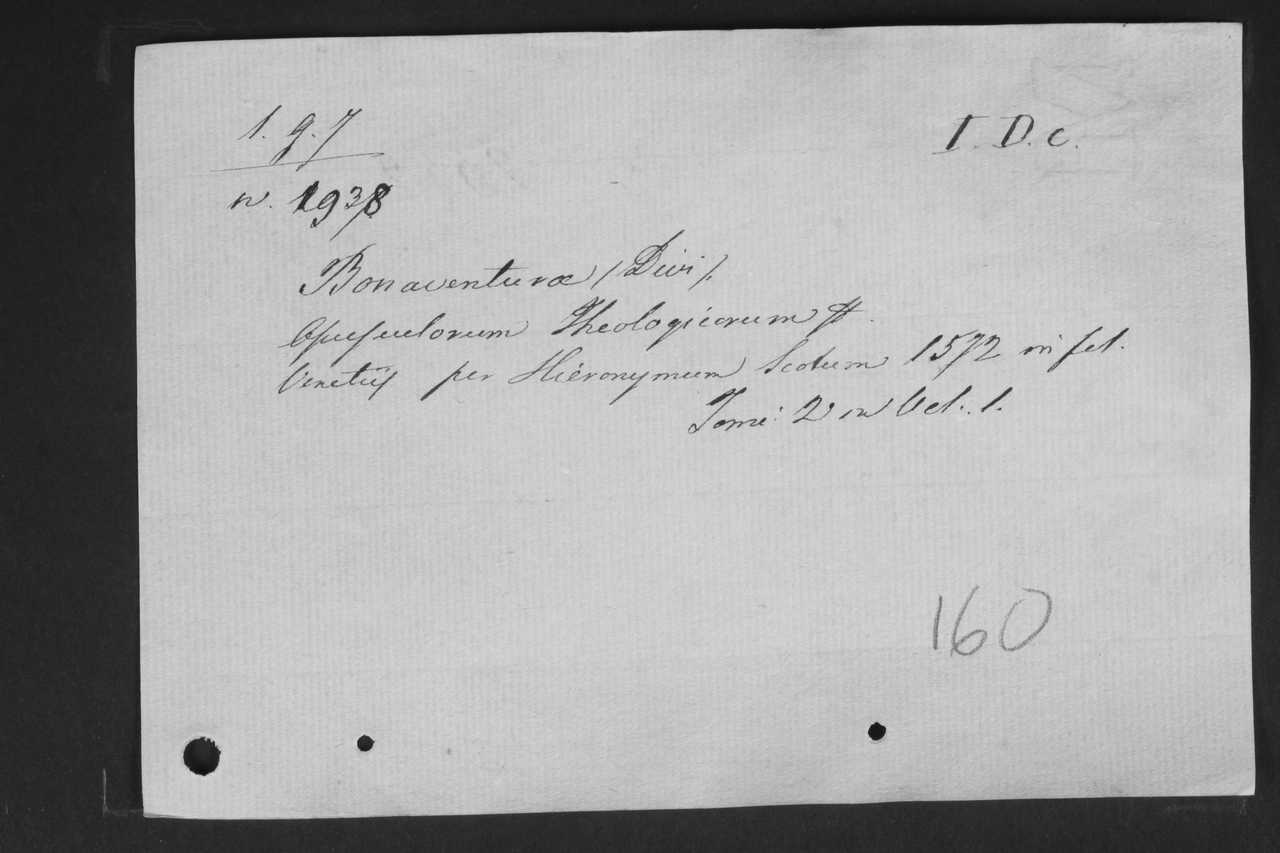 1. g. 7
I. D. c.
n. 1938
Bonaventuræ /Divi/.
Opusculorum Theologicorum
Venetijs per Hieronymum Scotum 1572 in fol.
Tomi: 2 in Vol. 1.
160